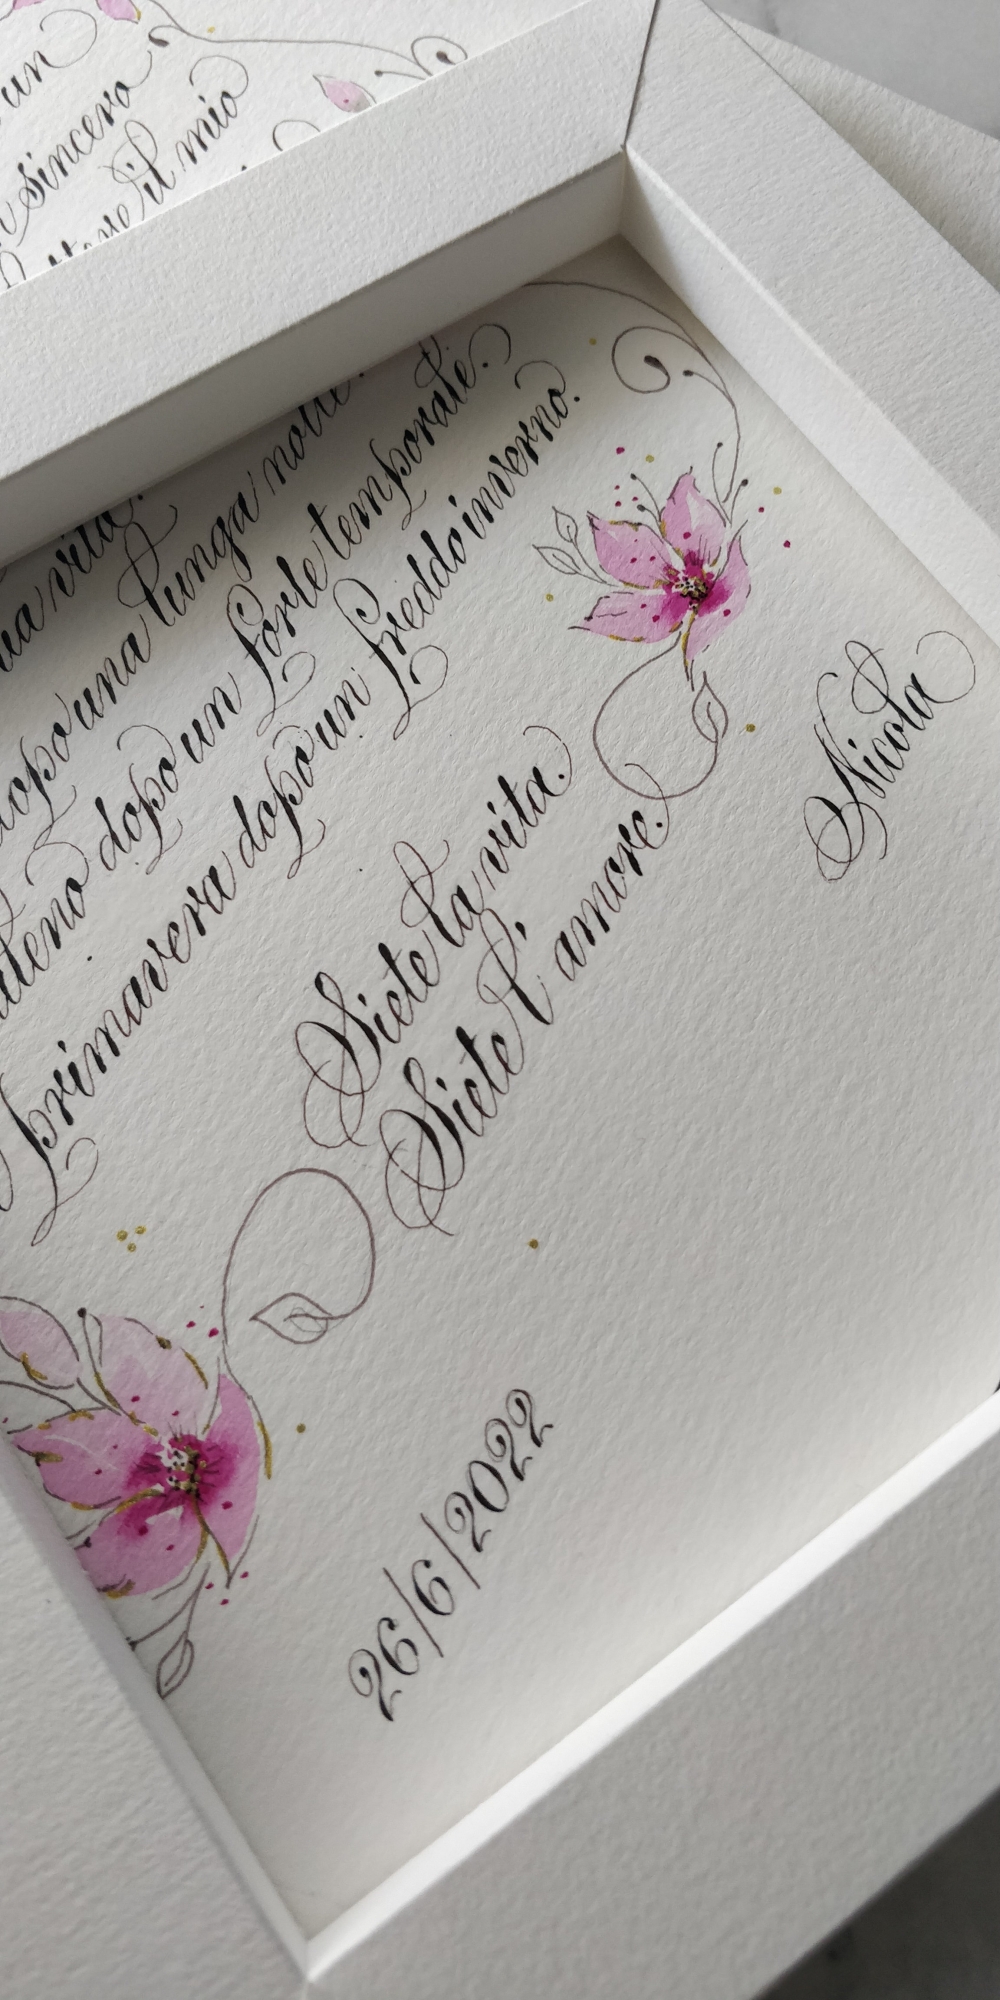 un
sincero
il mio
vita.
dopo una lunga notte.
dopo un forte temporale.
primavera dopo un freddo inverno.
Siete la vita.
Siete l'amore.
Nicola
26/6/2022